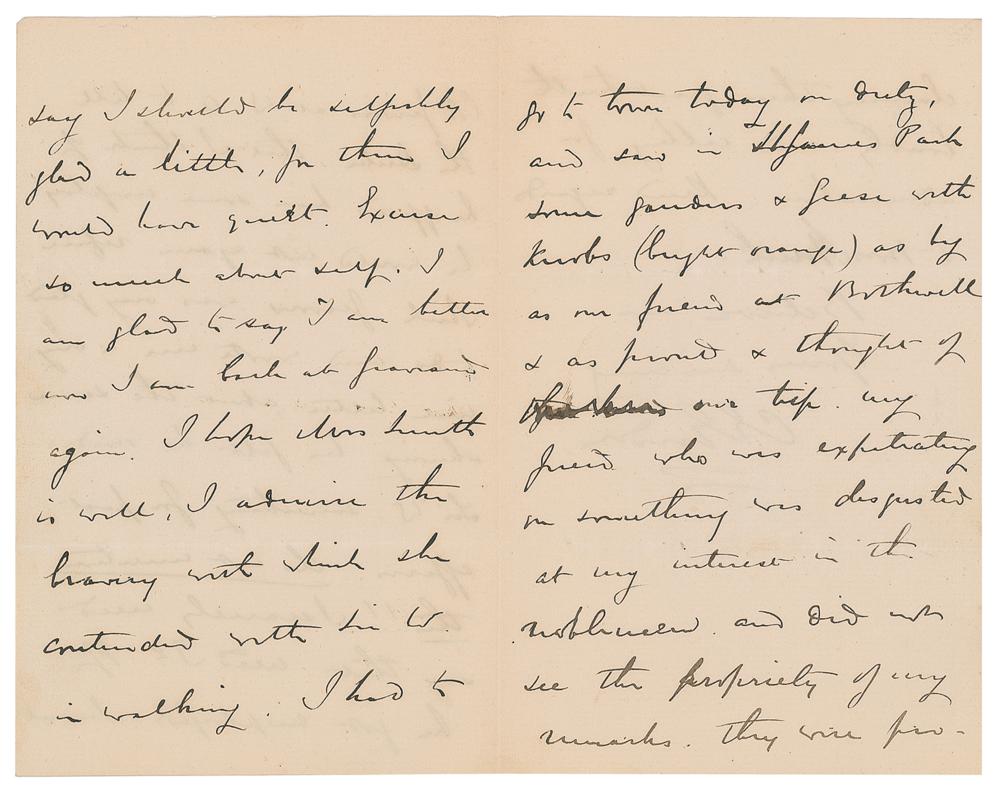 say I should be selfishly
glad a little, for then I
would have quiet. Excuse
so much about self. I
am glad to say I am better
now I am back at Gravesend
again. I hope Mrs Smith
is well, I admire the
bravery with which she
contended with Sir W.
in walking. I had to
go to town today on duty,
and saw in St James Park
some ganders & geese with
knobs (bright orange) as big
as our friend at Bothwell
& as proud & thought of
our trip. my
friend who was expatiating
on something was disgusted
at my interest in the
noblemen. and did not
see the propriety of my
remarks. they were pro-